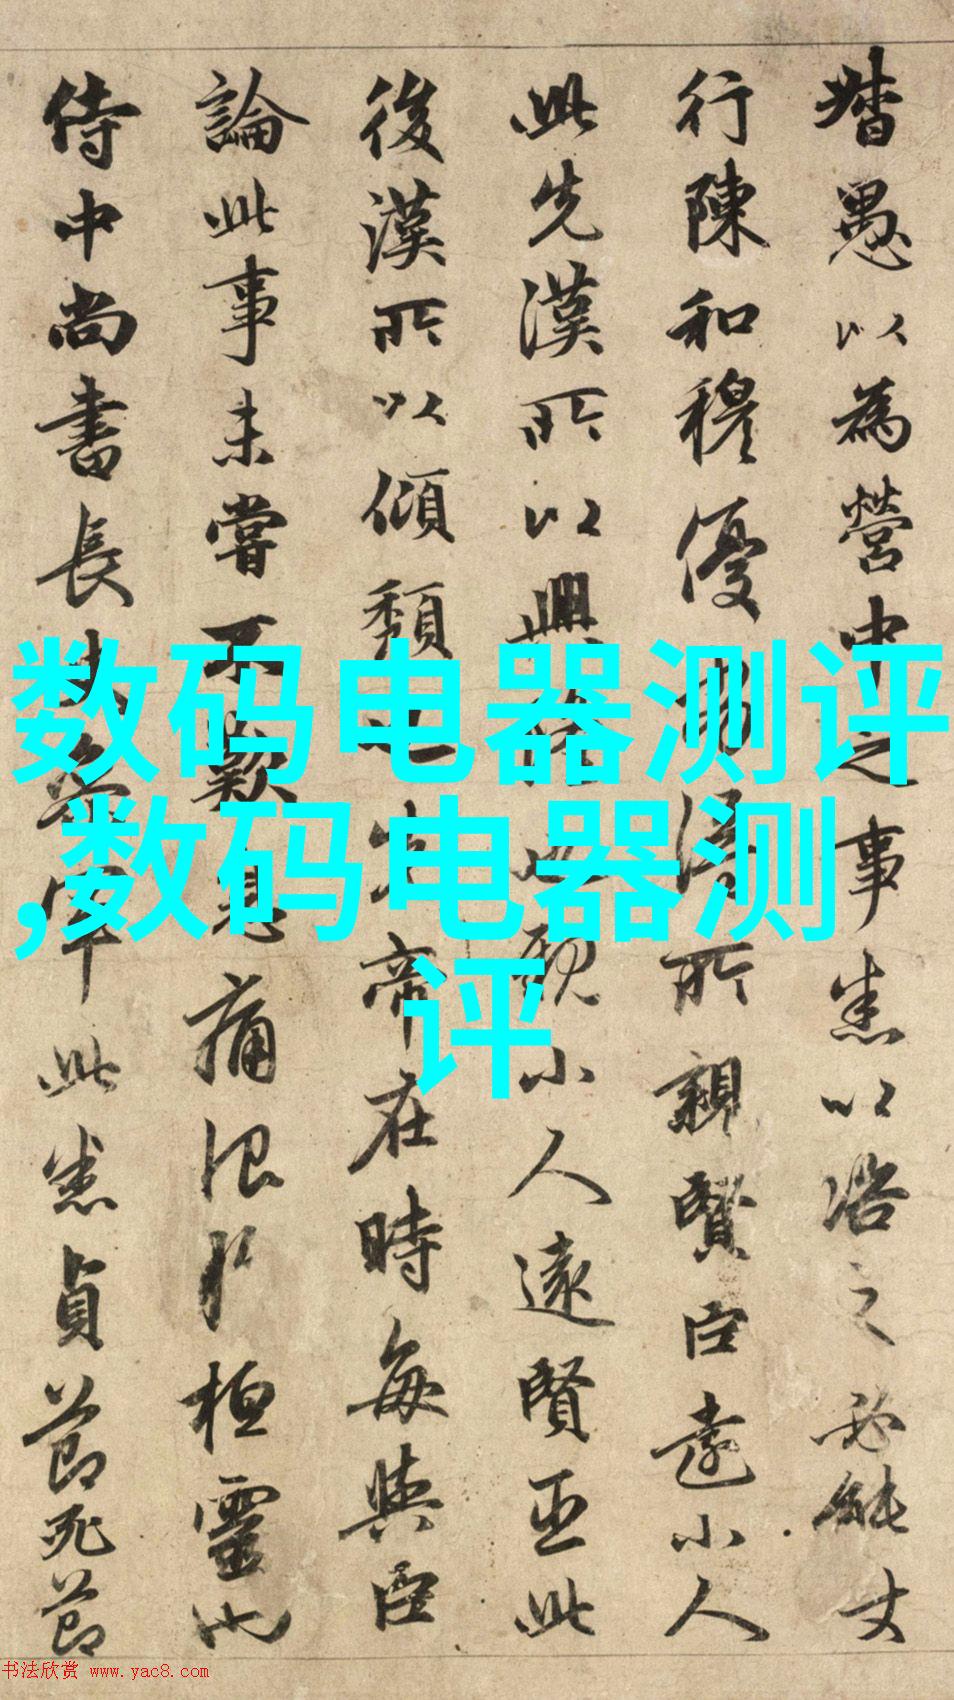 督愚以為營中之事悉以咨之必能
行陳和穆優劣得所親賢臣遠小人
此先漢所以興隆也親小人遠賢臣此
後漢所以傾頹也先帝在時每與臣
論此事未嘗不歎息痛恨於桓靈也
侍中尚書長史參軍此悉貞節死節
数码电器测评
,数码电器测
评
书法欣赏 www.yac8.com